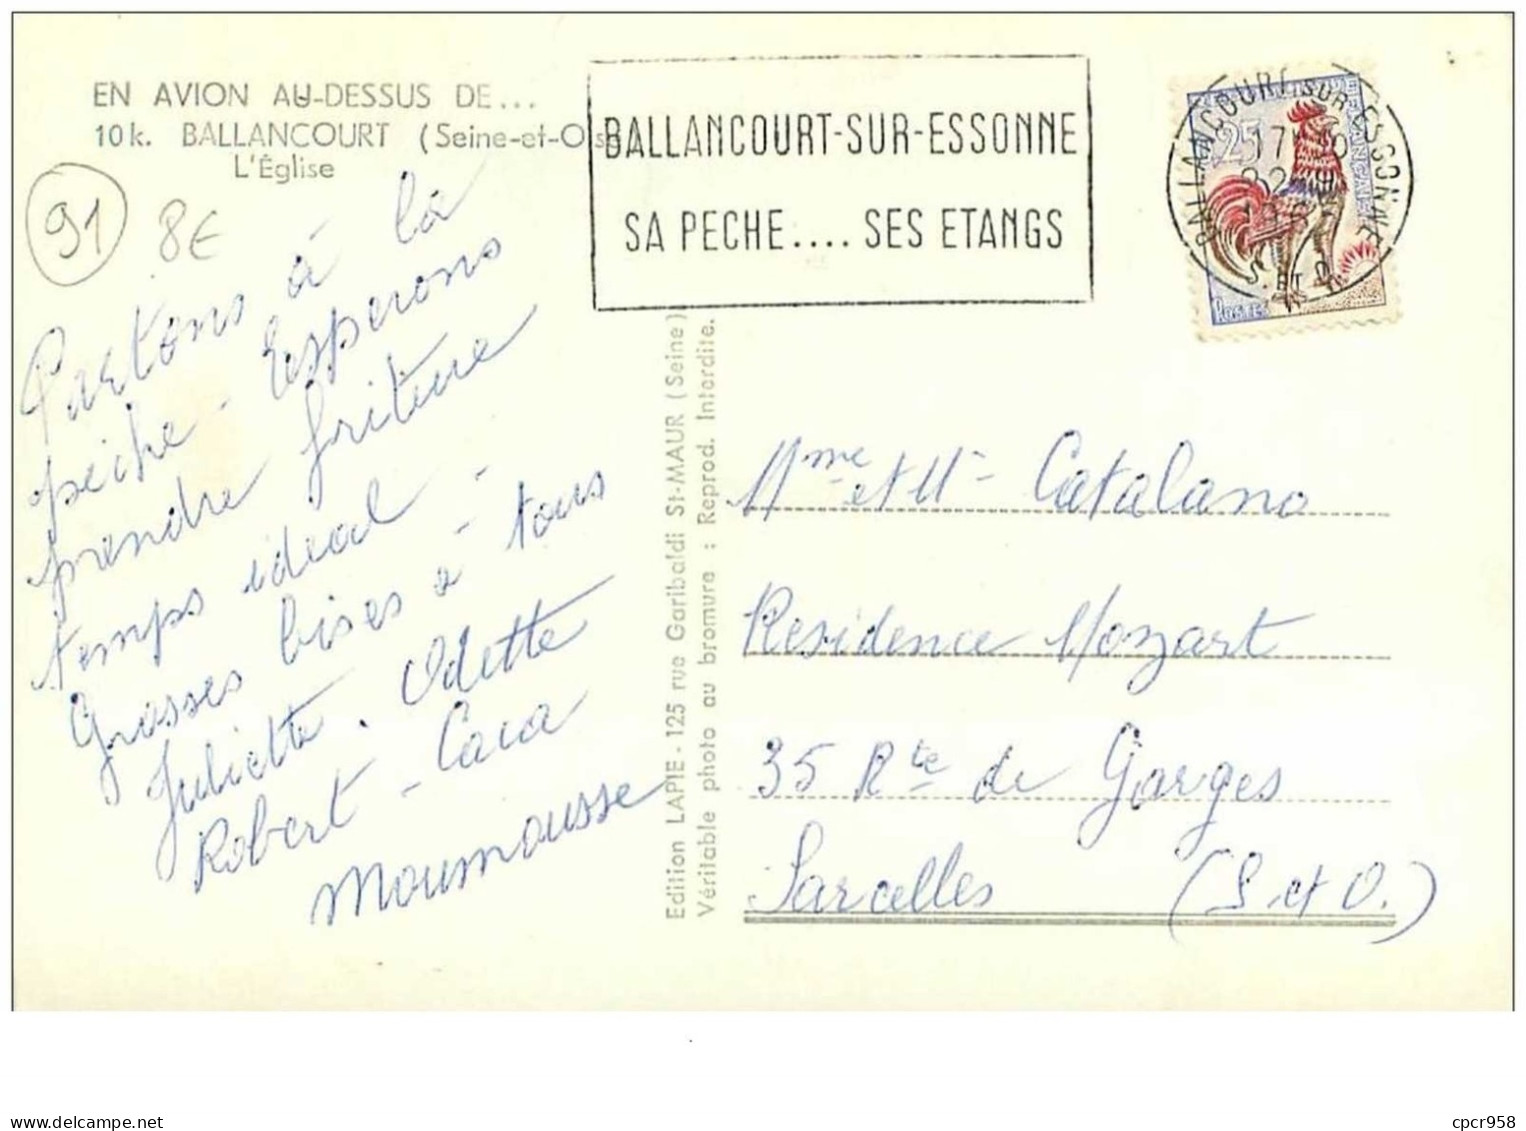 EN AVION AU-DESSUS DE...
10 k. BALLANCOURT (Seine-et-Oise
L'Église
91
8€
BALLANCOURT-SUR-ESSONNE
SA PECHE.... SES ETANGS
BALLANCOURT SUR ESSONNE
S. ET O.
25
Postes
Partons à la
pêche - Esperons
prendre friture
temps idéal -
Grosses bises à tous
Juliette. Odette
Robert - Cara
Moumousse
Edition LAPIE - 125 rue Garibaldi St-MAUR (Seine)
Véritable photo au bromure : Reprod. Interdite.
Mme et Mr Catalano
Residence Mozart
35 Rte de Garges
Sarcelles (S. et O.)
cpcr958